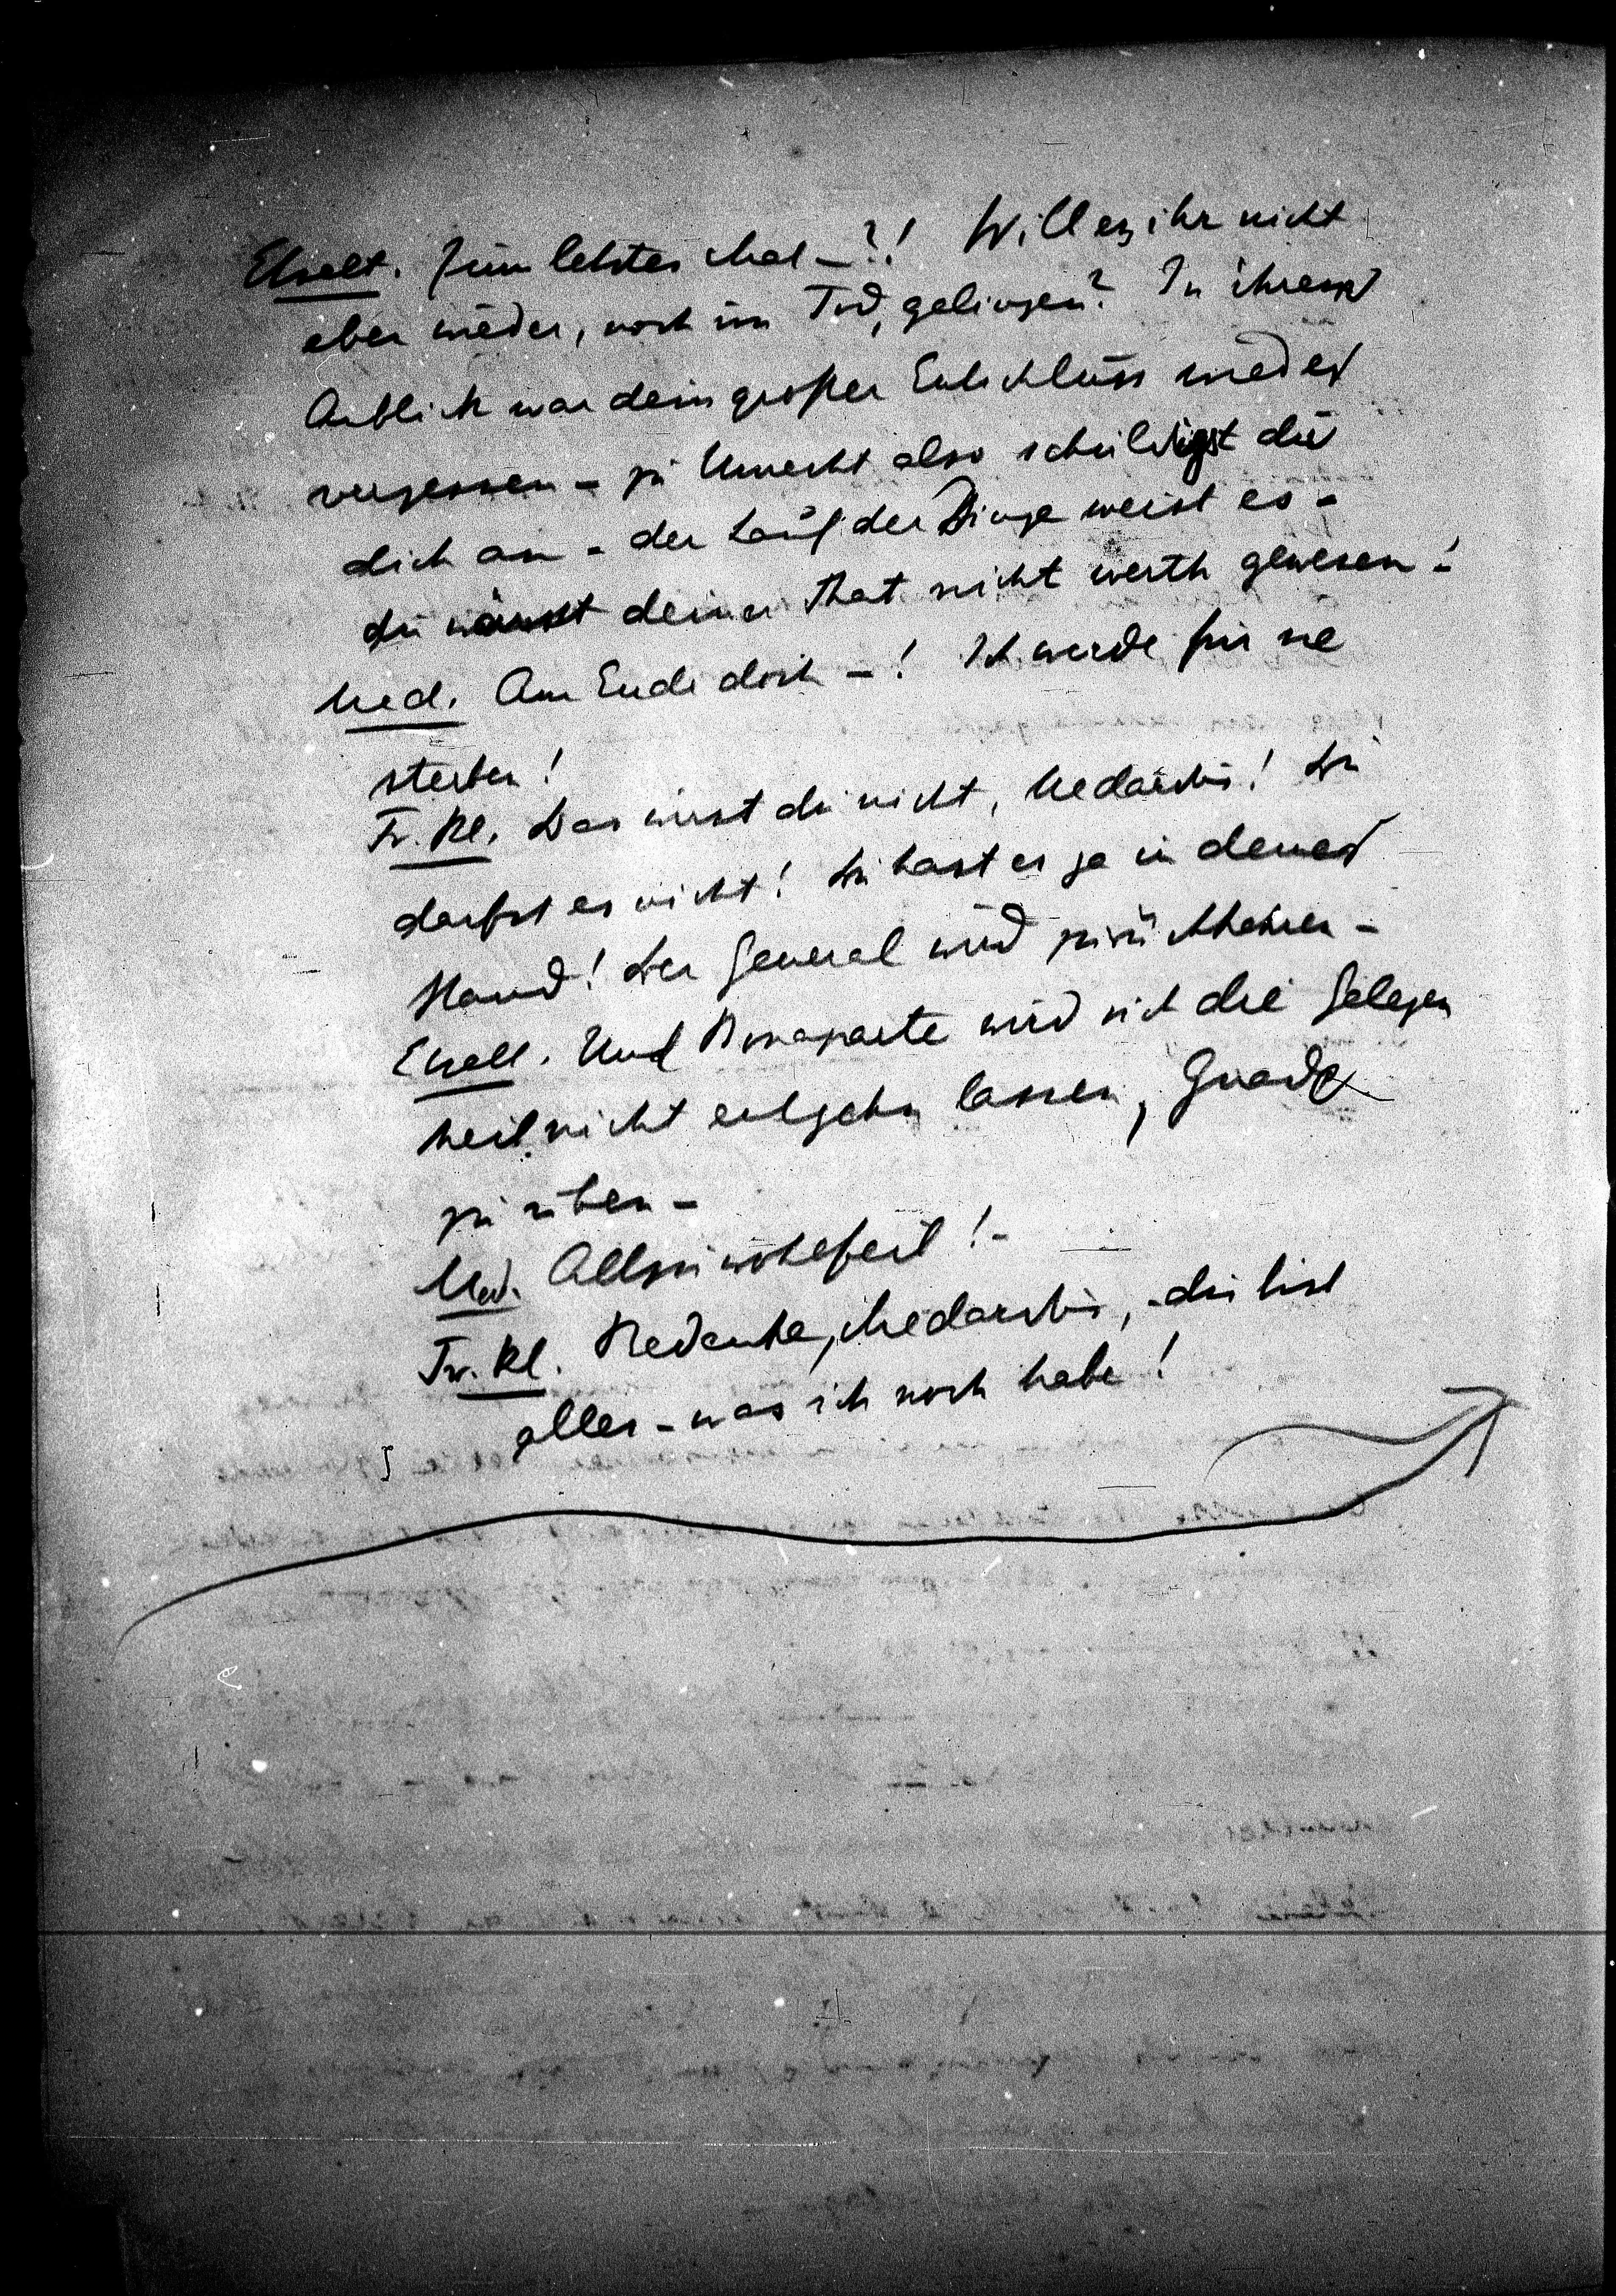 Etzelt. Zum letzten Mal –?! Will es ihr nicht
eben wieder, noch im Tod, gelingen? In ihrem
Anblick war dein großer Entschluss wieder
vergessen – zu Unrecht also schuldigst du
dich an – der Lauf der Dinge weist es –
du wärst deiner That nicht werth gewesen –!
Med. Am Ende doch –! Ich werde für sie
sterben!
Fr. Kl. Das wirst du nicht, Medardus! Du
darfst es nicht! Du hast es ja in deiner
Hand! Der General wird zurückkehren –
Etzelt. Und Bonaparte wird sich die Gelegen
heit nicht entgehn lassen, Gnade
zu üben –
Med. Allzu wohlfeil! –
Fr. Kl. Bedenke, Medardus, – du bist
alles – was ich noch habe!